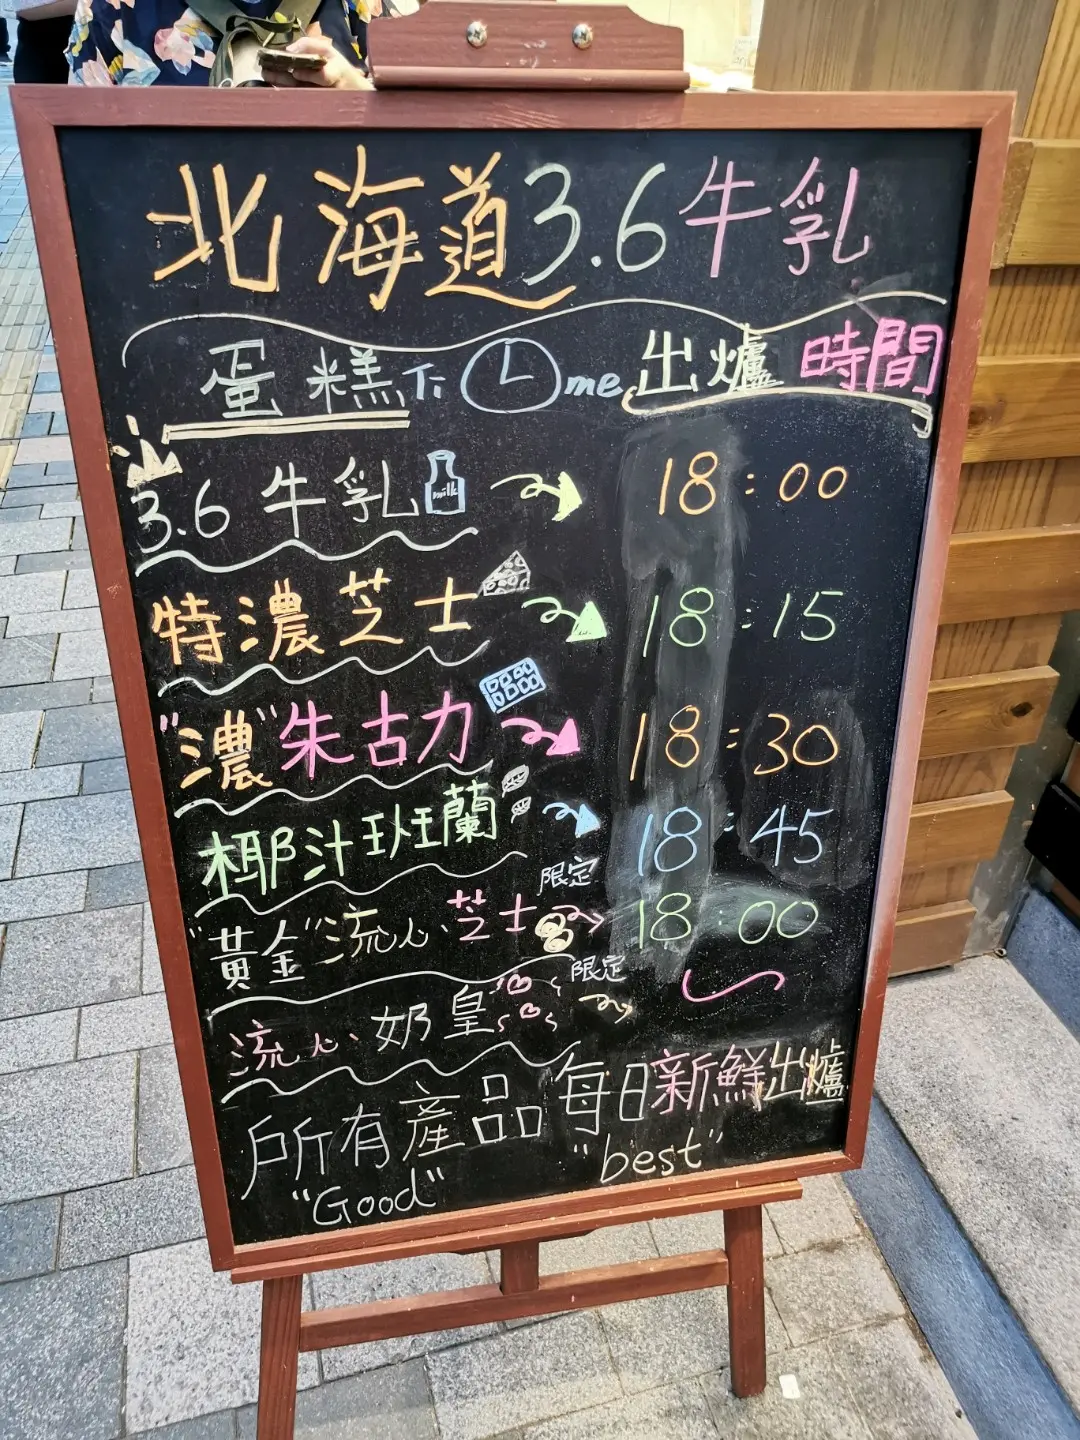 北海道3.6牛乳
蛋糕Ti me 出爐時間
3.6牛乳 milk 18:00
特濃芝士 18:15
"濃"朱古力 18:30
椰汁班蘭 18:45
"黃金"流心芝士 限定 18:00
流心奶皇 限定
所有產品每日新鮮出爐
"Good" "best"